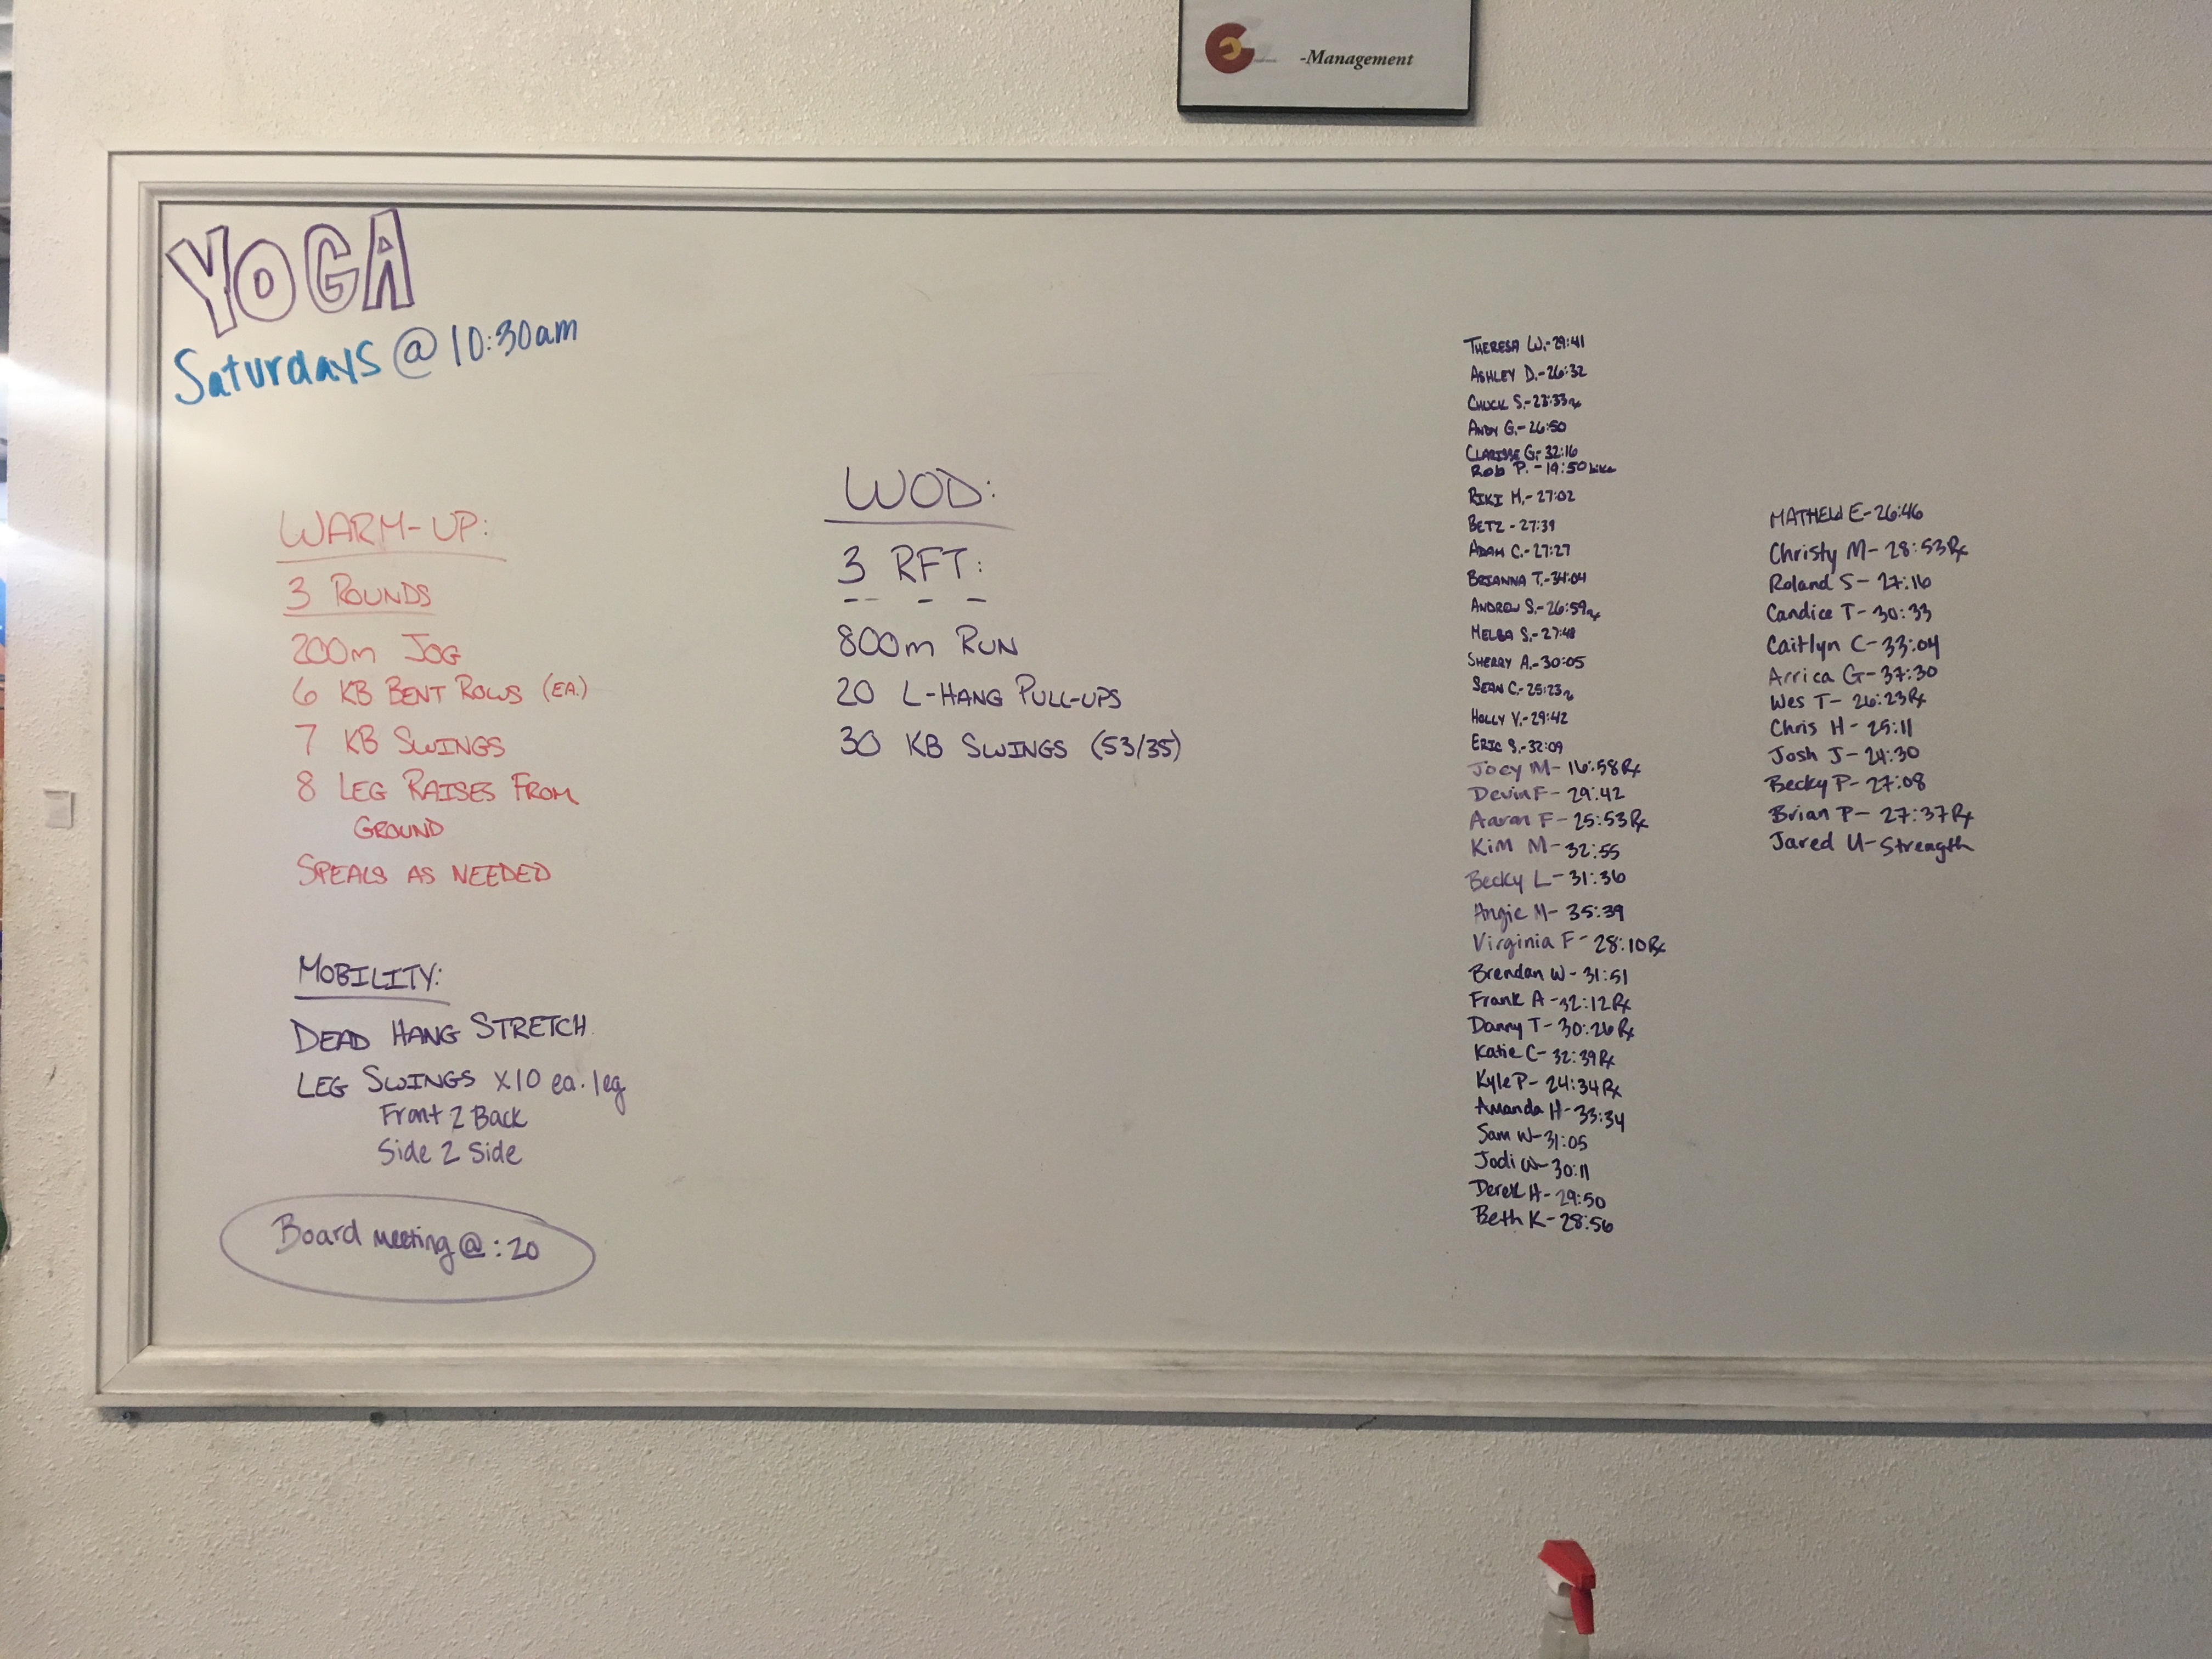 -Management
YOGA
Saturdays @ 10:30am
WARM-UP:
3 ROUNDS
200m JOG
6 KB BENT ROWS (EA.)
7 KB SWINGS
8 LEG RAISES FROM
GROUND
SPEALS AS NEEDED
MOBILITY:
DEAD HANG STRETCH
LEG SWINGS x10 ea. leg
Front 2 Back
Side 2 Side
Board meeting @ :20
WOD:
3 RFT:
800m RUN
20 L-HANG PULL-UPS
30 KB SWINGS (53/35)
THERESA W.- 29:41
ASHLEY D.- 26:32
CHUCK S.- 23:33 Rx
ANDY G.- 26:50
CLARISSE G.- 32:16
ROB P. - 19:50 bike
RIKI M.- 27:02
BETZ - 27:39
ADAM C.- 27:27
BRIANNA T.- 34:04
ANDREW S.- 26:59 Rx
MELBA S.- 27:48
SHERRY A.- 30:05
SEAN C.- 25:23 Rx
HOLLY V.- 29:42
ERIC S.- 32:09
Joey M- 16:58 Rx
Devin F- 29:42
Aaron F- 25:53 Rx
Kim M- 32:55
Becky L- 31:36
Angie M- 35:39
Virginia F- 28:10 Rx
Brendan W- 31:51
Frank A- 32:12 Rx
Danny T- 30:26 Rx
Katie C- 32:39 Rx
Kyle P- 24:34 Rx
Amanda H- 33:34
Sam W- 31:05
Jodi W- 30:11
Derek H- 29:50
Beth K- 28:56
MATHEW E- 26:46
Christy M- 28:53 Rx
Roland S- 27:16
Candice T- 30:33
Caitlyn C- 33:04
Arrica G- 37:30
Wes T- 26:23 Rx
Chris H- 25:11
Josh J- 24:30
Becky P- 27:08
Brian P- 27:37 Rx
Jared U- Strength